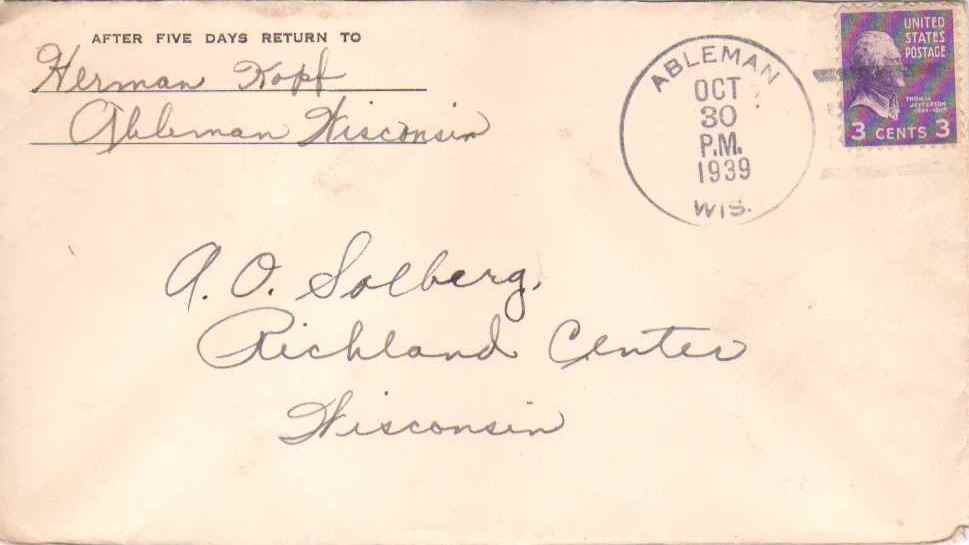 AFTER FIVE DAYS RETURN TO
Herman Kopf
Ableman Wisconsin
ABLEMAN
OCT
30
P.M.
1939
WIS.
UNITED
STATES
POSTAGE
THOMAS
JEFFERSON
3 CENTS 3
A. O. Solberg,
Richland Center
Wisconsin